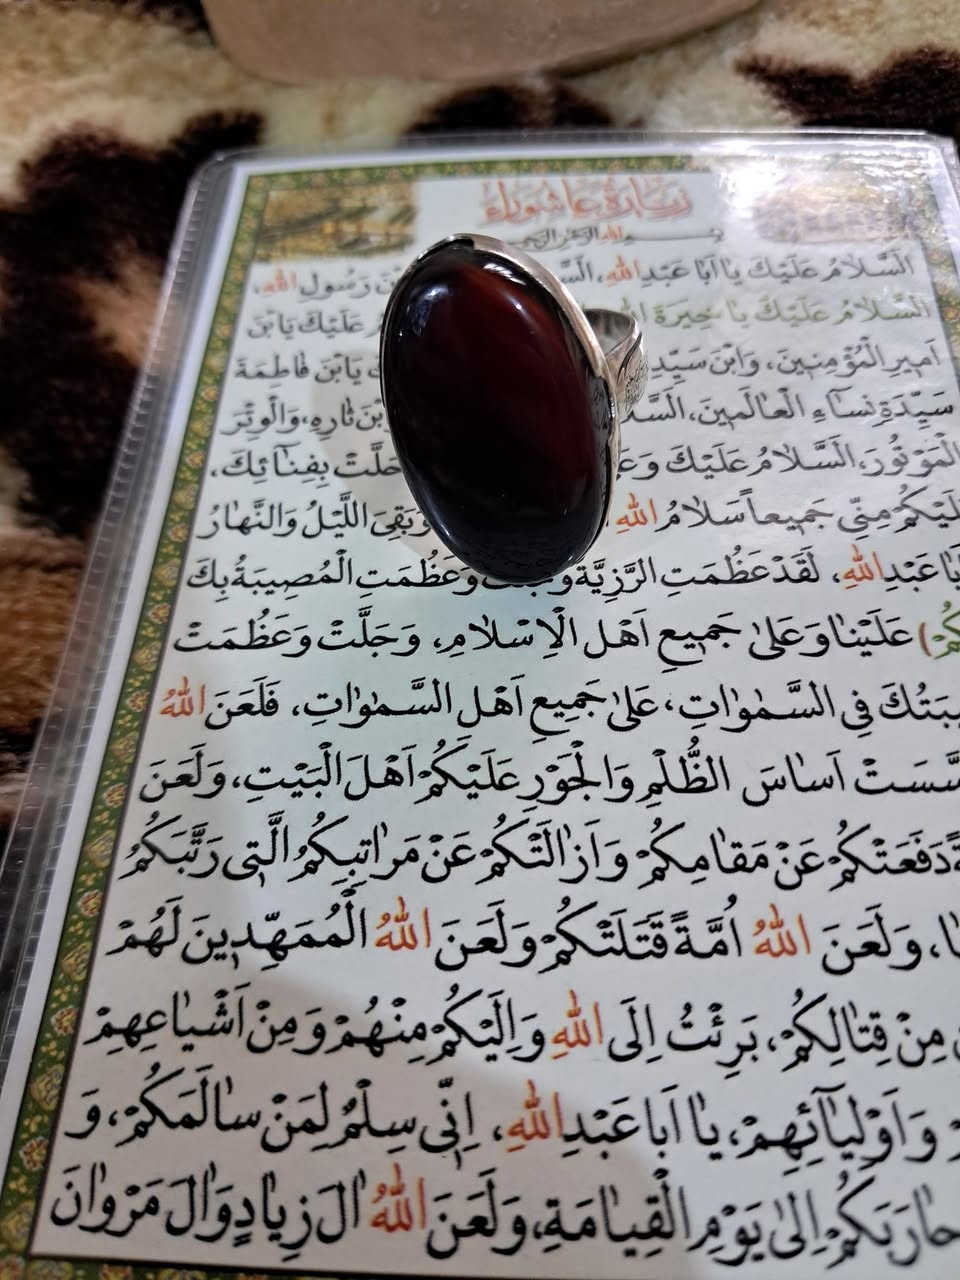 زيارة عاشوراء
بسم الله الرحمن الرحيم
اَلسَّلامُ عَلَيْكَ يا اَبا عَبْدِ اللهِ، السَّ رَسُولِ اللهِ،
السَّلامُ عَلَيْكَ يا خِيَرَةَ عَلَيْكَ يَابْنَ
اَميرِ الْمُؤْمِنينَ، وَابْنَ سَيِّدِ يَابْنَ فاطِمَةَ
سَيِّدَةِ نِساءِ الْعالَمينَ، اَلسَّلا ثارِهِ، وَالْوِتْرَ
الْمَوْتُورَ، اَلسَّلامُ عَلَيْكَ وَعَ حَلَّتْ بِفِنائِكَ،
لَيْكُمْ مِنّي جَميعاً سَلامُ اللهِ وَبَقِيَ اللَّيْلُ وَالنَّهارُ
يا اَبا عَبْدِ اللهِ، لَقَدْ عَظُمَتِ الرَّزِيَّةُ وَعَظُمَتِ الْمُصيبَةُ بِكَ
كُمْ) عَلَيْنا وَعَلىٰ جَميعِ اَهْلِ الْاِسْلامِ، وَجَلَّتْ وَعَظُمَتْ
يبَتُكَ فِي السَّمٰواتِ، عَلىٰ جَميعِ اَهْلِ السَّمٰواتِ، فَلَعَنَ اللهُ
سَّسَتْ اَساسَ الظُّلْمِ وَالْجَوْرِ عَلَيْكُمْ اَهْلَ الْبَيْتِ، وَلَعَنَ
ةً دَفَعَتْكُمْ عَنْ مَقامِكُمْ وَاَزالَتْكُمْ عَنْ مَراتِبِكُمُ الَّتي رَتَّبَكُمُ
ا، وَلَعَنَ اللهُ اُمَّةً قَتَلَتْكُمْ وَلَعَنَ اللهُ الْمُمَهِّدينَ لَهُمْ
مِنْ قِتالِكُمْ، بَرِئْتُ اِلَى اللهِ وَاِلَيْكُمْ مِنْهُمْ وَمِنْ اَشْياعِهِمْ
وَاَوْلِيآئِهِمْ، يا اَبا عَبْدِ اللهِ، اِنّي سِلْمٌ لِمَنْ سالَمَكُمْ، وَ
حارَبَكُمْ اِلىٰ يَوْمِ الْقِيامَةِ، وَلَعَنَ اللهُ الَ زِيادٍ وَالَ مَرْوانَ